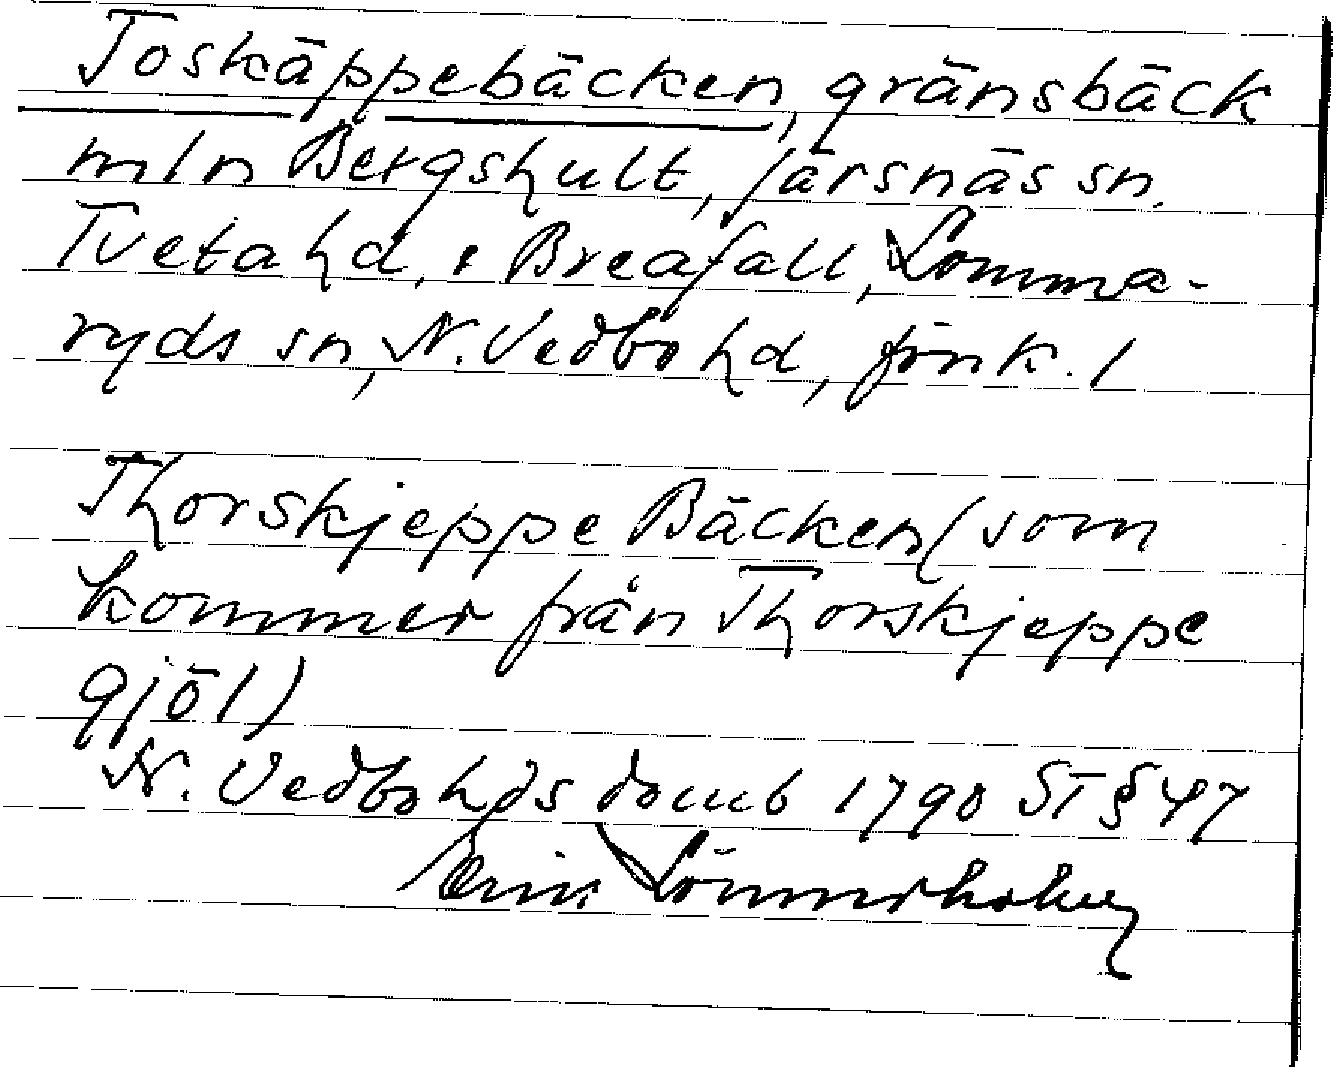 Toskäppebäcken, gränsbäck
mln Bergshult, Järsnäs sn.
Tveta hd, o Breafall, Lomma-
ryds sn, N. Vedbo hd, jönk. l
Thorskjeppe Bäcken (som
kommer från Thorskjeppe
gjöl)
N. Vedbo hds domb 1790 ST § 47